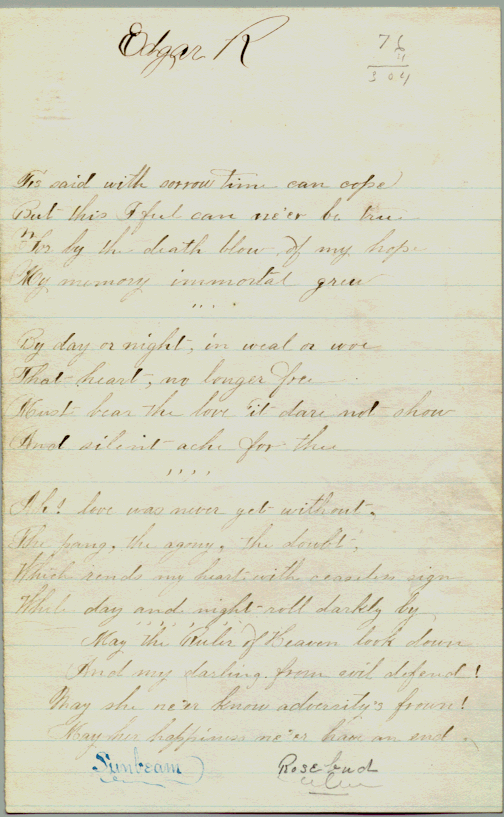 Edgar R
76
4
304
Tis said with sorrow time can cope
But this I feel can ne'er be true
For by the death blow of my hope
My memory immortal grew
By day or night, in weal or woe
That heart, no longer free
Must bear the love it dare not show
And silent ache for thee
Ah! love was never yet without,
The pang, the agony, the doubt,
Which rends my heart with ceaseless sign
While day and night roll darkly by
May the Ruler of Heaven look down
And my darling from evil defend!
May she ne'er know adversity's frown!
May her happiness ne'er have an end.
Sunbeam
Rosebud